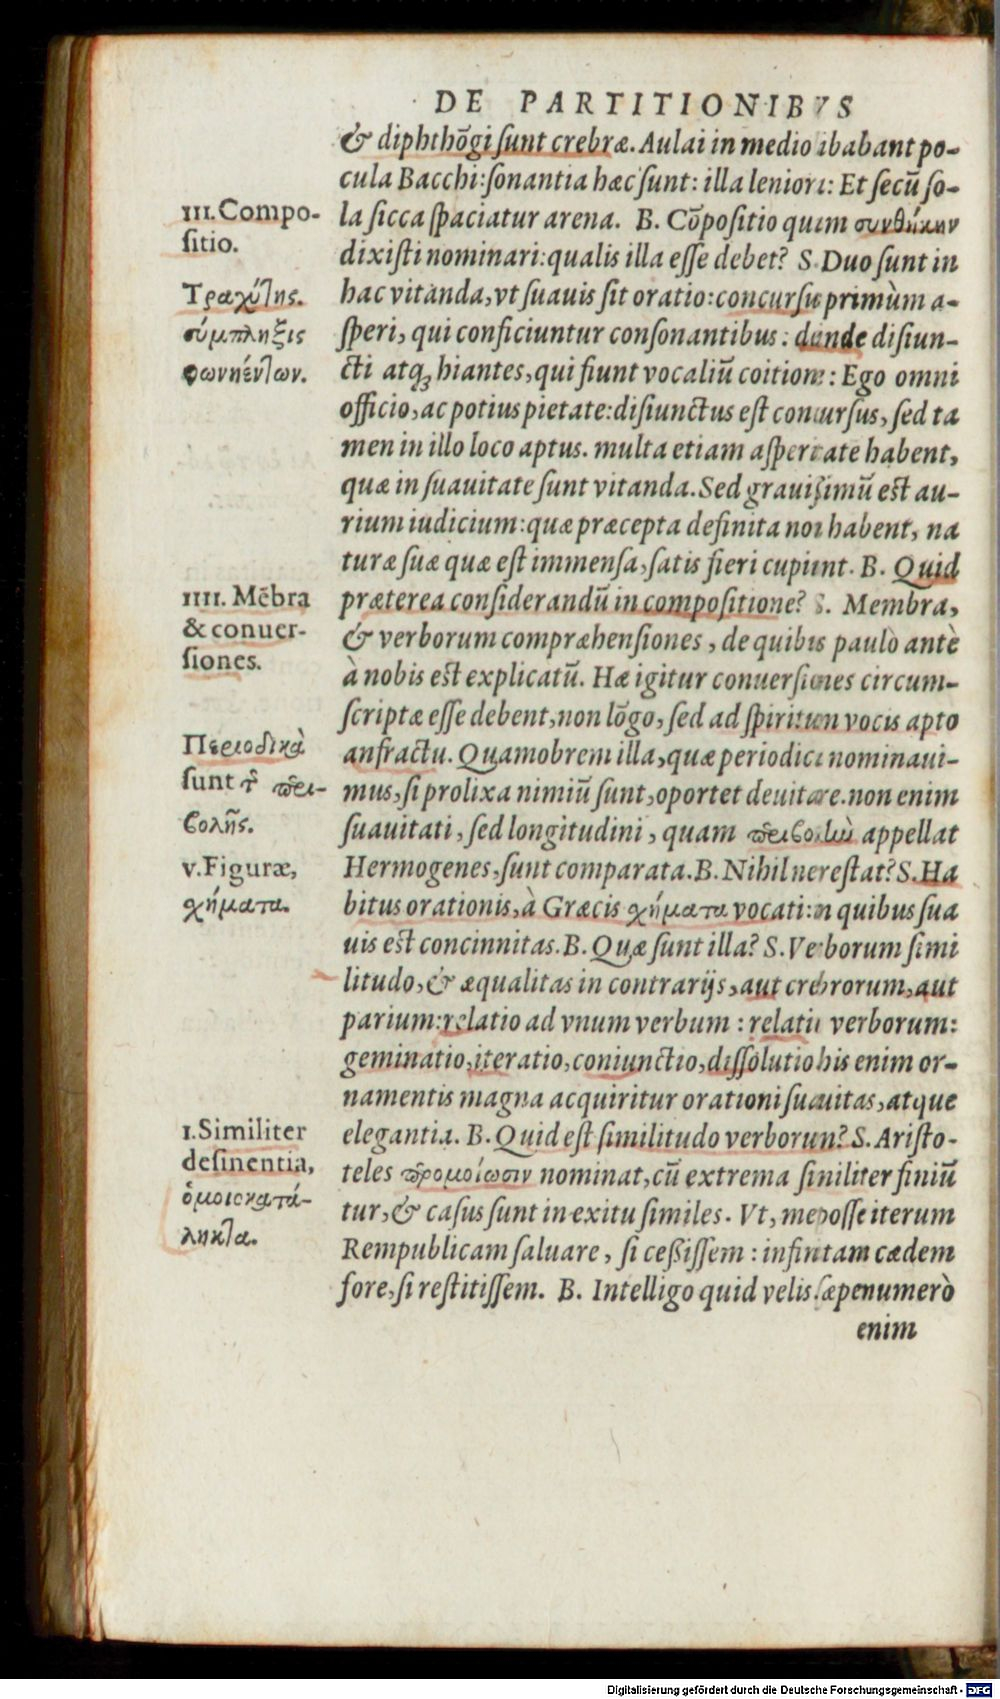 DE PARTITIONIBVS
& diphthōgi sunt crebræ. Aulai in medio libabant po-
cula Bacchi: sonantia hæc sunt: illa leniora: Et secū so-
III. Compo-
sitio.
la sicca spaciatur arena. B. Cōpositio quam συνθήκην
dixisti nominari: qualis illa esse debet? S. Duo sunt in
Τραχύτης.
hac vitanda, vt suauis sit oratio: concursus primùm a-
σύμπληξις
speri, qui conficiuntur consonantibus: deinde disiun-
φωνηέντων.
cti atq; hiantes, qui fiunt vocaliū coitione: Ego omni
officio, ac potius pietate: disiunctus est concursus, sed ta
men in illo loco aptus. multa etiam asperitate habent,
quæ in suauitate sunt vitanda. Sed grauißimū est au-
rium iudicium: quæ præcepta definita non habent, na
turæ suæ quæ est immensa, satis fieri cupiunt. B. Quid
IIII. Mēbra
& conuer-
siones.
præterea considerandū in compositione? S. Membra,
& verborum compræhensiones, de quibus paulò antè
à nobis est explicatū. Hæ igitur conuersiones circum-
scriptæ esse debent, non lōgo, sed ad spiritum vocis apto
Περιοδικὰ
sunt τ περι-
βολῆς.
anfractu. Quamobrem illa, quæ periodica nominaui-
mus, si prolixa nimiū sunt, oportet deuitare. non enim
suauitati, sed longitudini, quam περιβολὼ appellat
v. Figuræ,
χήματα.
Hermogenes, sunt comparata. B. Nihil ne restat? S. Ha
bitus orationis, à Græcis χήματα vocati: in quibus sua
uis est concinnitas. B. Quæ sunt illa? S. Verborum simi
litudo, & æqualitas in contrarijs, aut crebrorum, aut
parium: relatio ad vnum verbum: relatio verborum:
geminatio, iteratio, coniunctio, dissolutio his enim or-
namentis magna acquiritur orationi suauitas, atque
I. Similiter
desinentia,
ὁμοιοκατά-
ληκτα.
elegantia. B. Quid est similitudo verborum? S. Aristo-
teles προμοίωσιν nominat, cū extrema similiter finiū
tur, & casus sunt in exitu similes. Vt, me posse iterum
Rempublicam saluare, si ceßissem: infinitam cædem
fore, si restitissem. B. Intelligo quid velis. sæpenumerò
enim
Digitalisierung gefördert durch die Deutsche Forschungsgemeinschaft - DFG